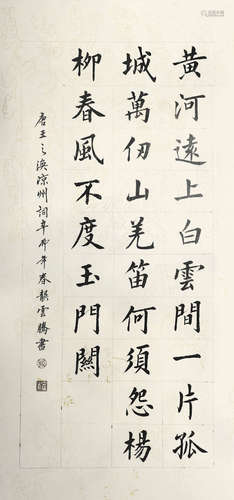 黃河遠上白雲間一片孤
城萬仞山羌笛何須怨楊
柳春風不度玉門關
唐王之渙涼州詞辛卯年春韻雲騰書